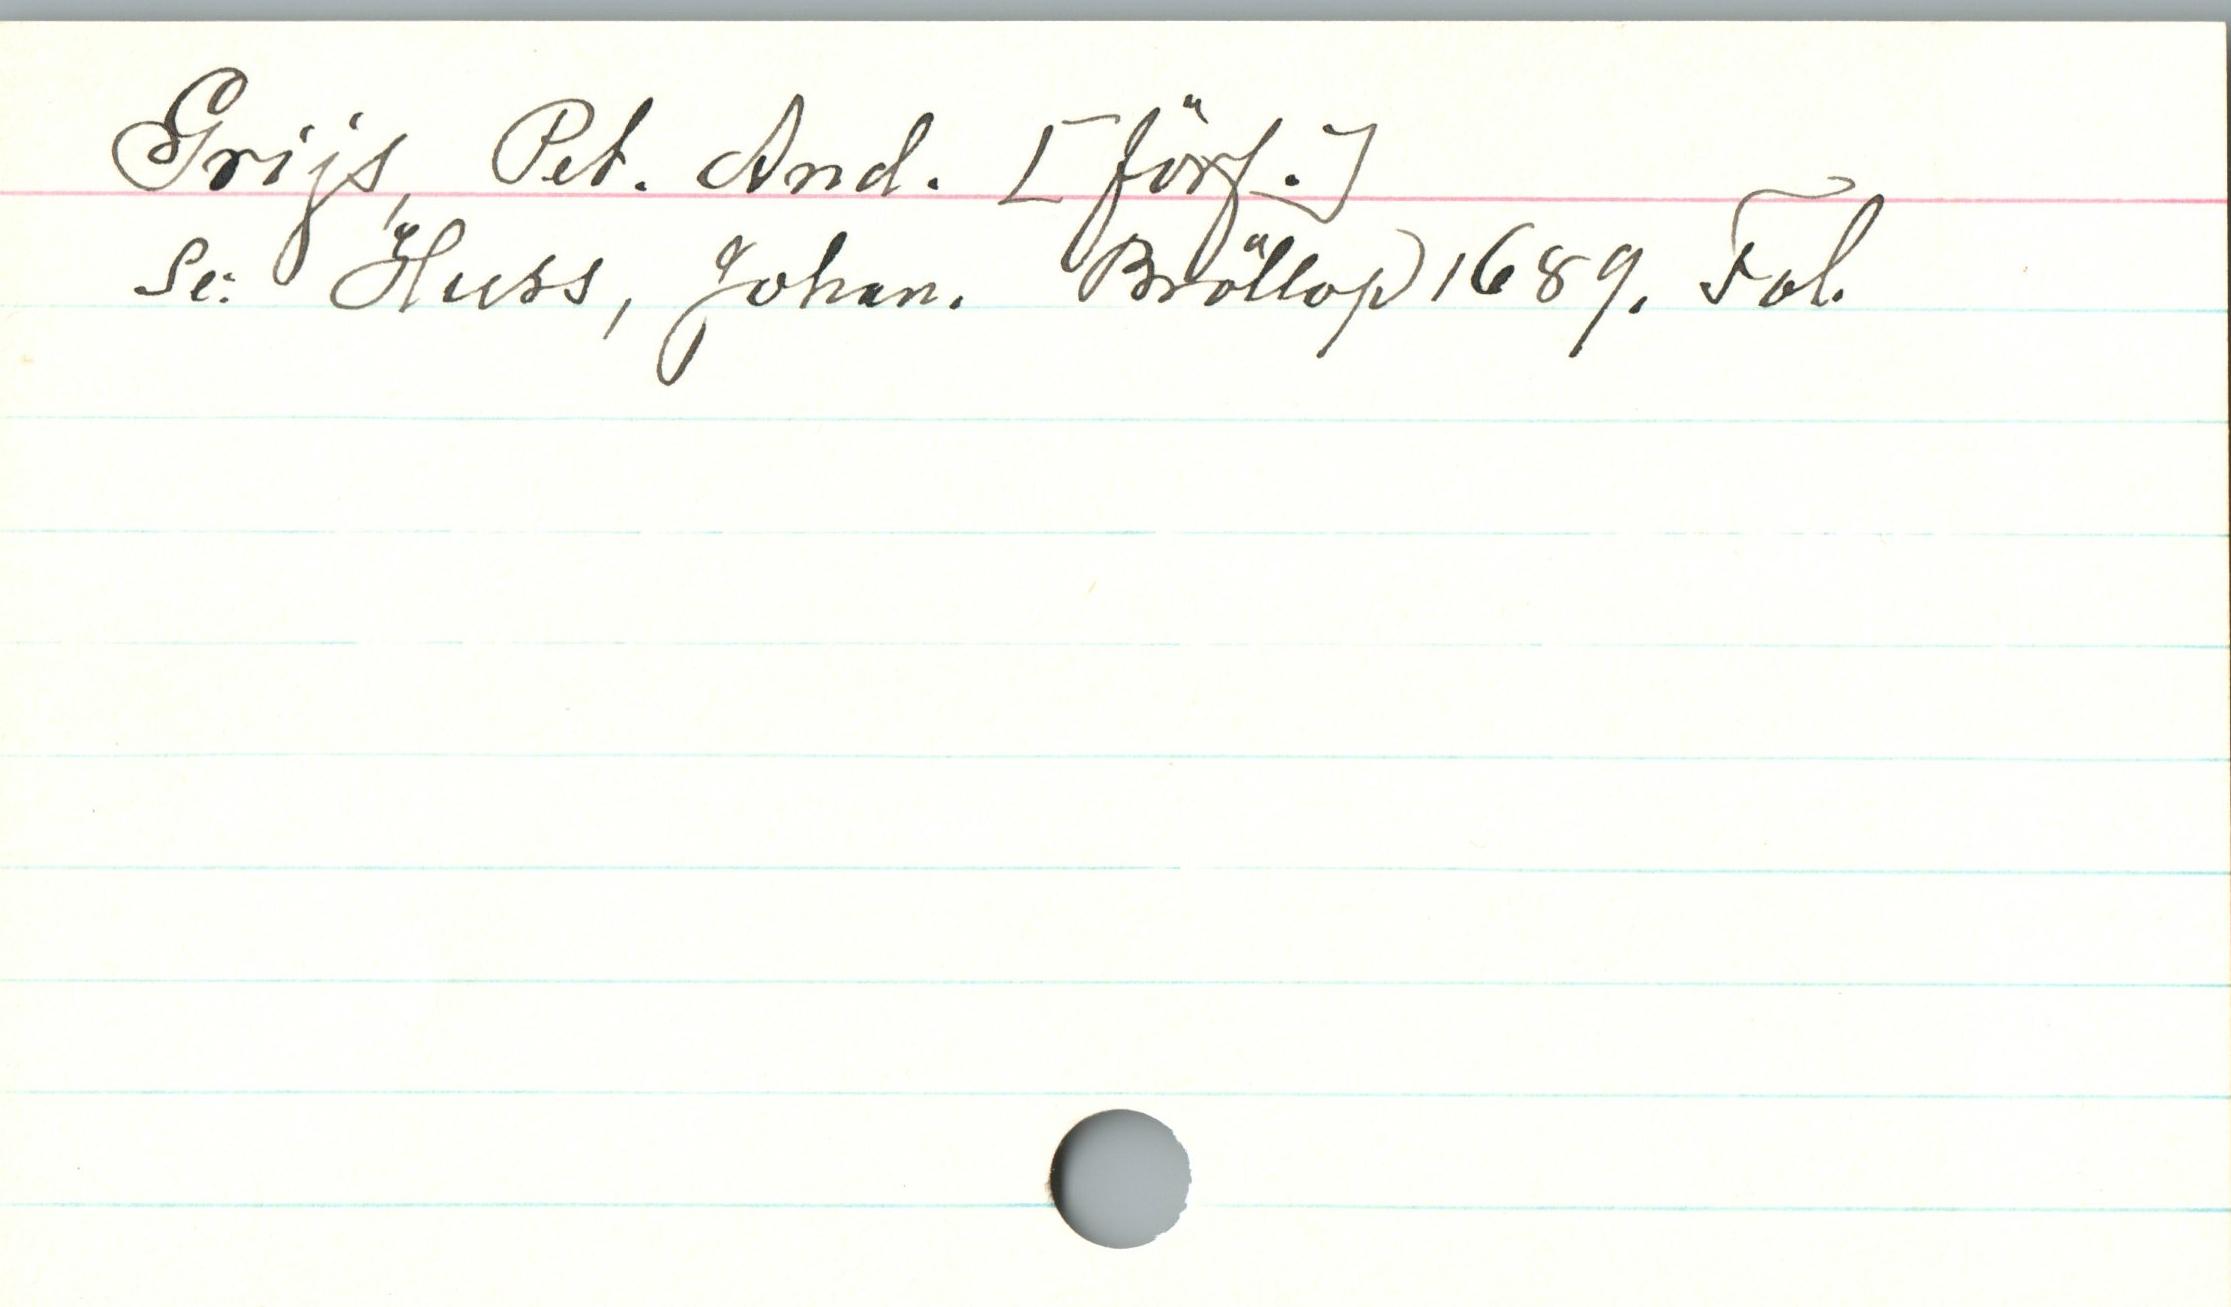 Grijs, Pet. And. [förf.]
Se: Huss, Johan. Bröllop 1689. Fol.